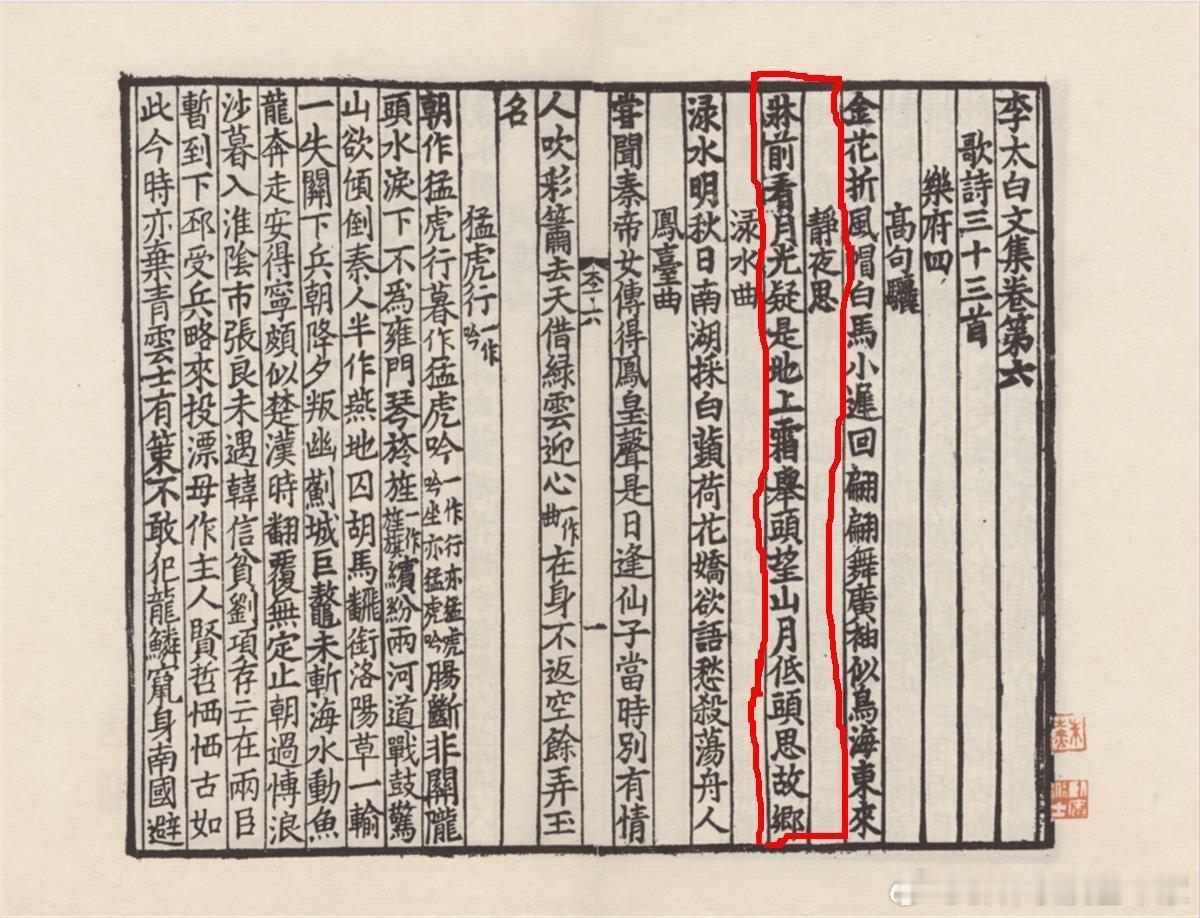 李太白文集卷第六
歌詩三十三首
樂府四
高句驪
金花折風帽白馬小遲回翩翩舞廣袖似鳥海東來
靜夜思
牀前看月光疑是地上霜舉頭望山月低頭思故鄉
渌水曲
渌水明秋日南湖採白蘋荷花嬌欲語愁殺蕩舟人
鳳臺曲
嘗聞秦帝女傳得鳳皇聲是日逢仙子當時別有情
人吹彩簫去天借緑雲迎心一作曲在身不返空餘弄玉
名
猛虎行一作吟
朝作猛虎行暮作猛虎吟一作行亦猛虎吟坐亦猛虎吟腸斷非關隴
頭水淚下不爲雍門琴旌旌一作旌旗繽紛兩河道戰鼓驚
山欲傾倒秦人半作燕地囚胡馬飜銜洛陽草一輸
一失關下兵朝降夕叛幽薊城巨鼇未斬海水動魚
龍奔走安得寧頗似楚漢時翻覆無定止朝過愽浪
沙暮入淮陰市張良未遇韓信貧劉項存亡在兩臣
暫到下邳受兵略來投漂母作主人賢哲恓恓古如
此今時亦棄青雲士有策不敢犯龍鱗竄身南國避